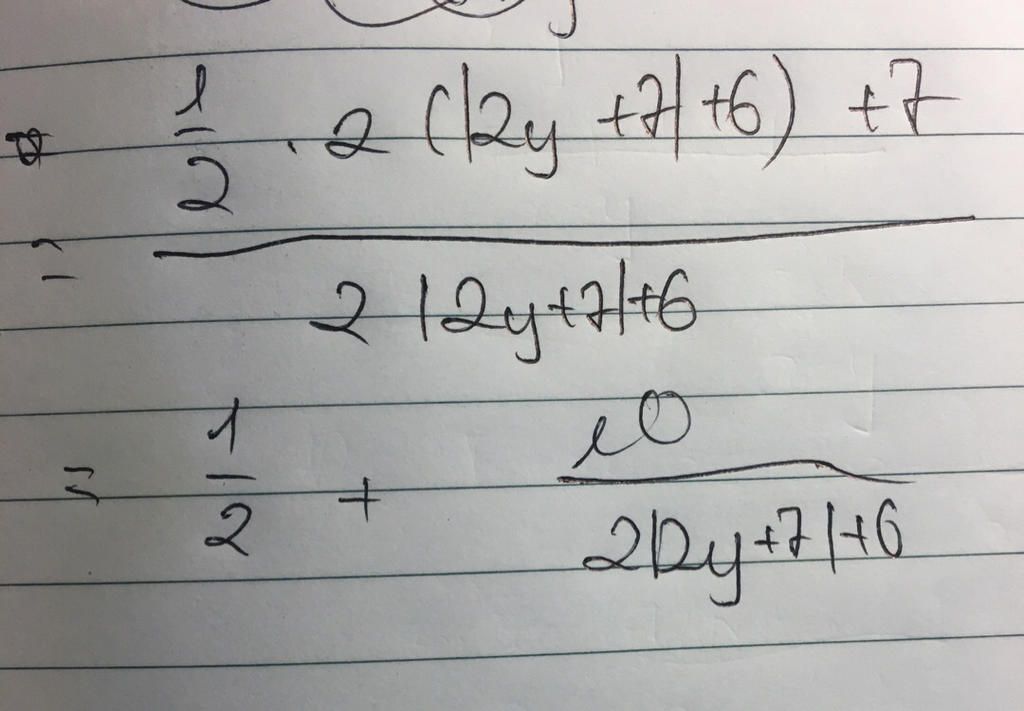 1/2 . 2 (|2y +7| +6) +7
=
2 |2y+7|+6
= 1/2 + 10/2|2y+7|+6